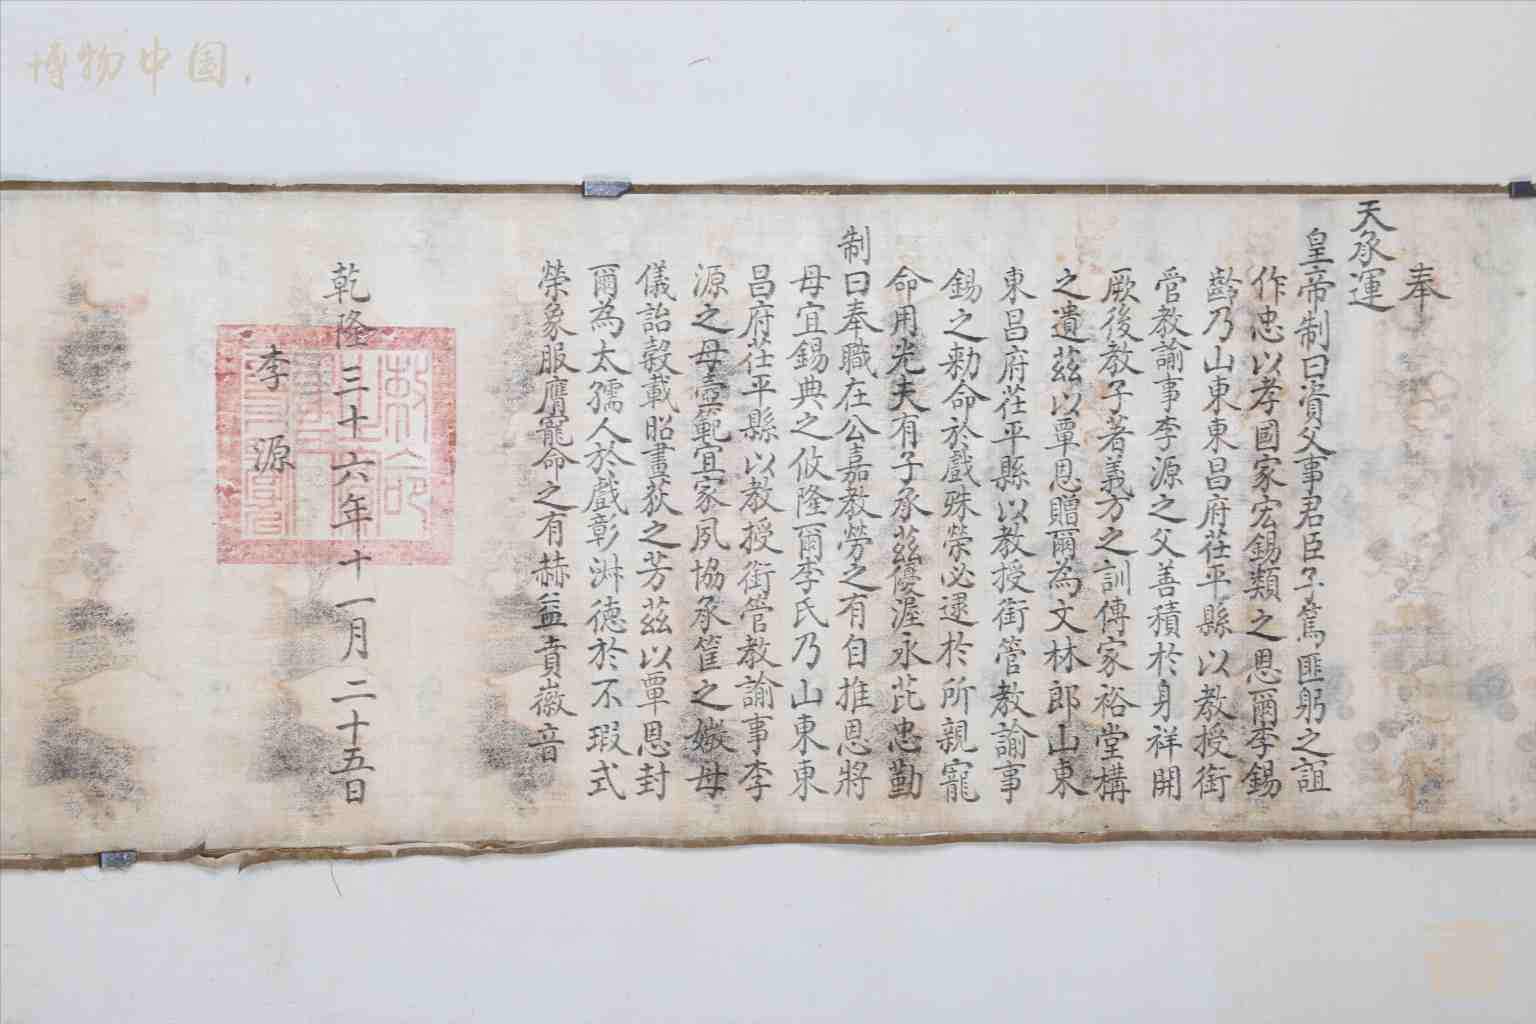 奉
天承運
皇帝制曰資父事君臣子篤匪躬之誼
作忠以孝國家宏錫類之恩爾李錫
齡乃山東東昌府茌平縣以教授銜
管教諭事李源之父善積於身祥開
厥後教子著義方之訓傳家裕堂構
之遺茲以覃恩贈爾為文林郎山東
東昌府茌平縣以教授銜管教諭事
錫之勅命於戲殊榮必逮於所親寵
命用光夫有子承茲優渥永茂忠勤
制曰奉職在公嘉教勞之有自推恩將
母宜錫典之攸隆爾李氏乃山東東
昌府茌平縣以教授銜管教諭事李
源之母壼範宜家夙協承筐之媺母
儀詒穀載昭畫荻之芳茲以覃恩封
爾為太孺人於戲彰淑德於不瑕式
榮象服膺寵命之有赫益賁徽音
乾隆三十六年十一月二十五日
李源
敕命之寶
博物中国